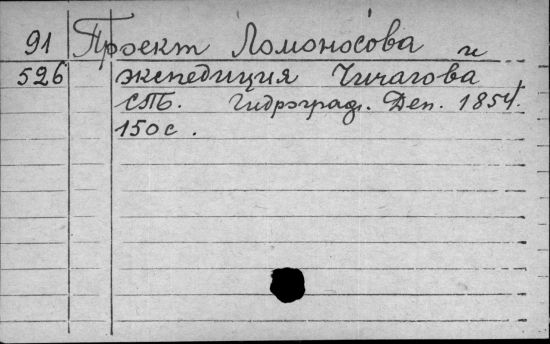 91 Проект Ломоносова и
526 экспедиция Чичагова
СПб. Гидрограф. Деп. 1854.
150 с.